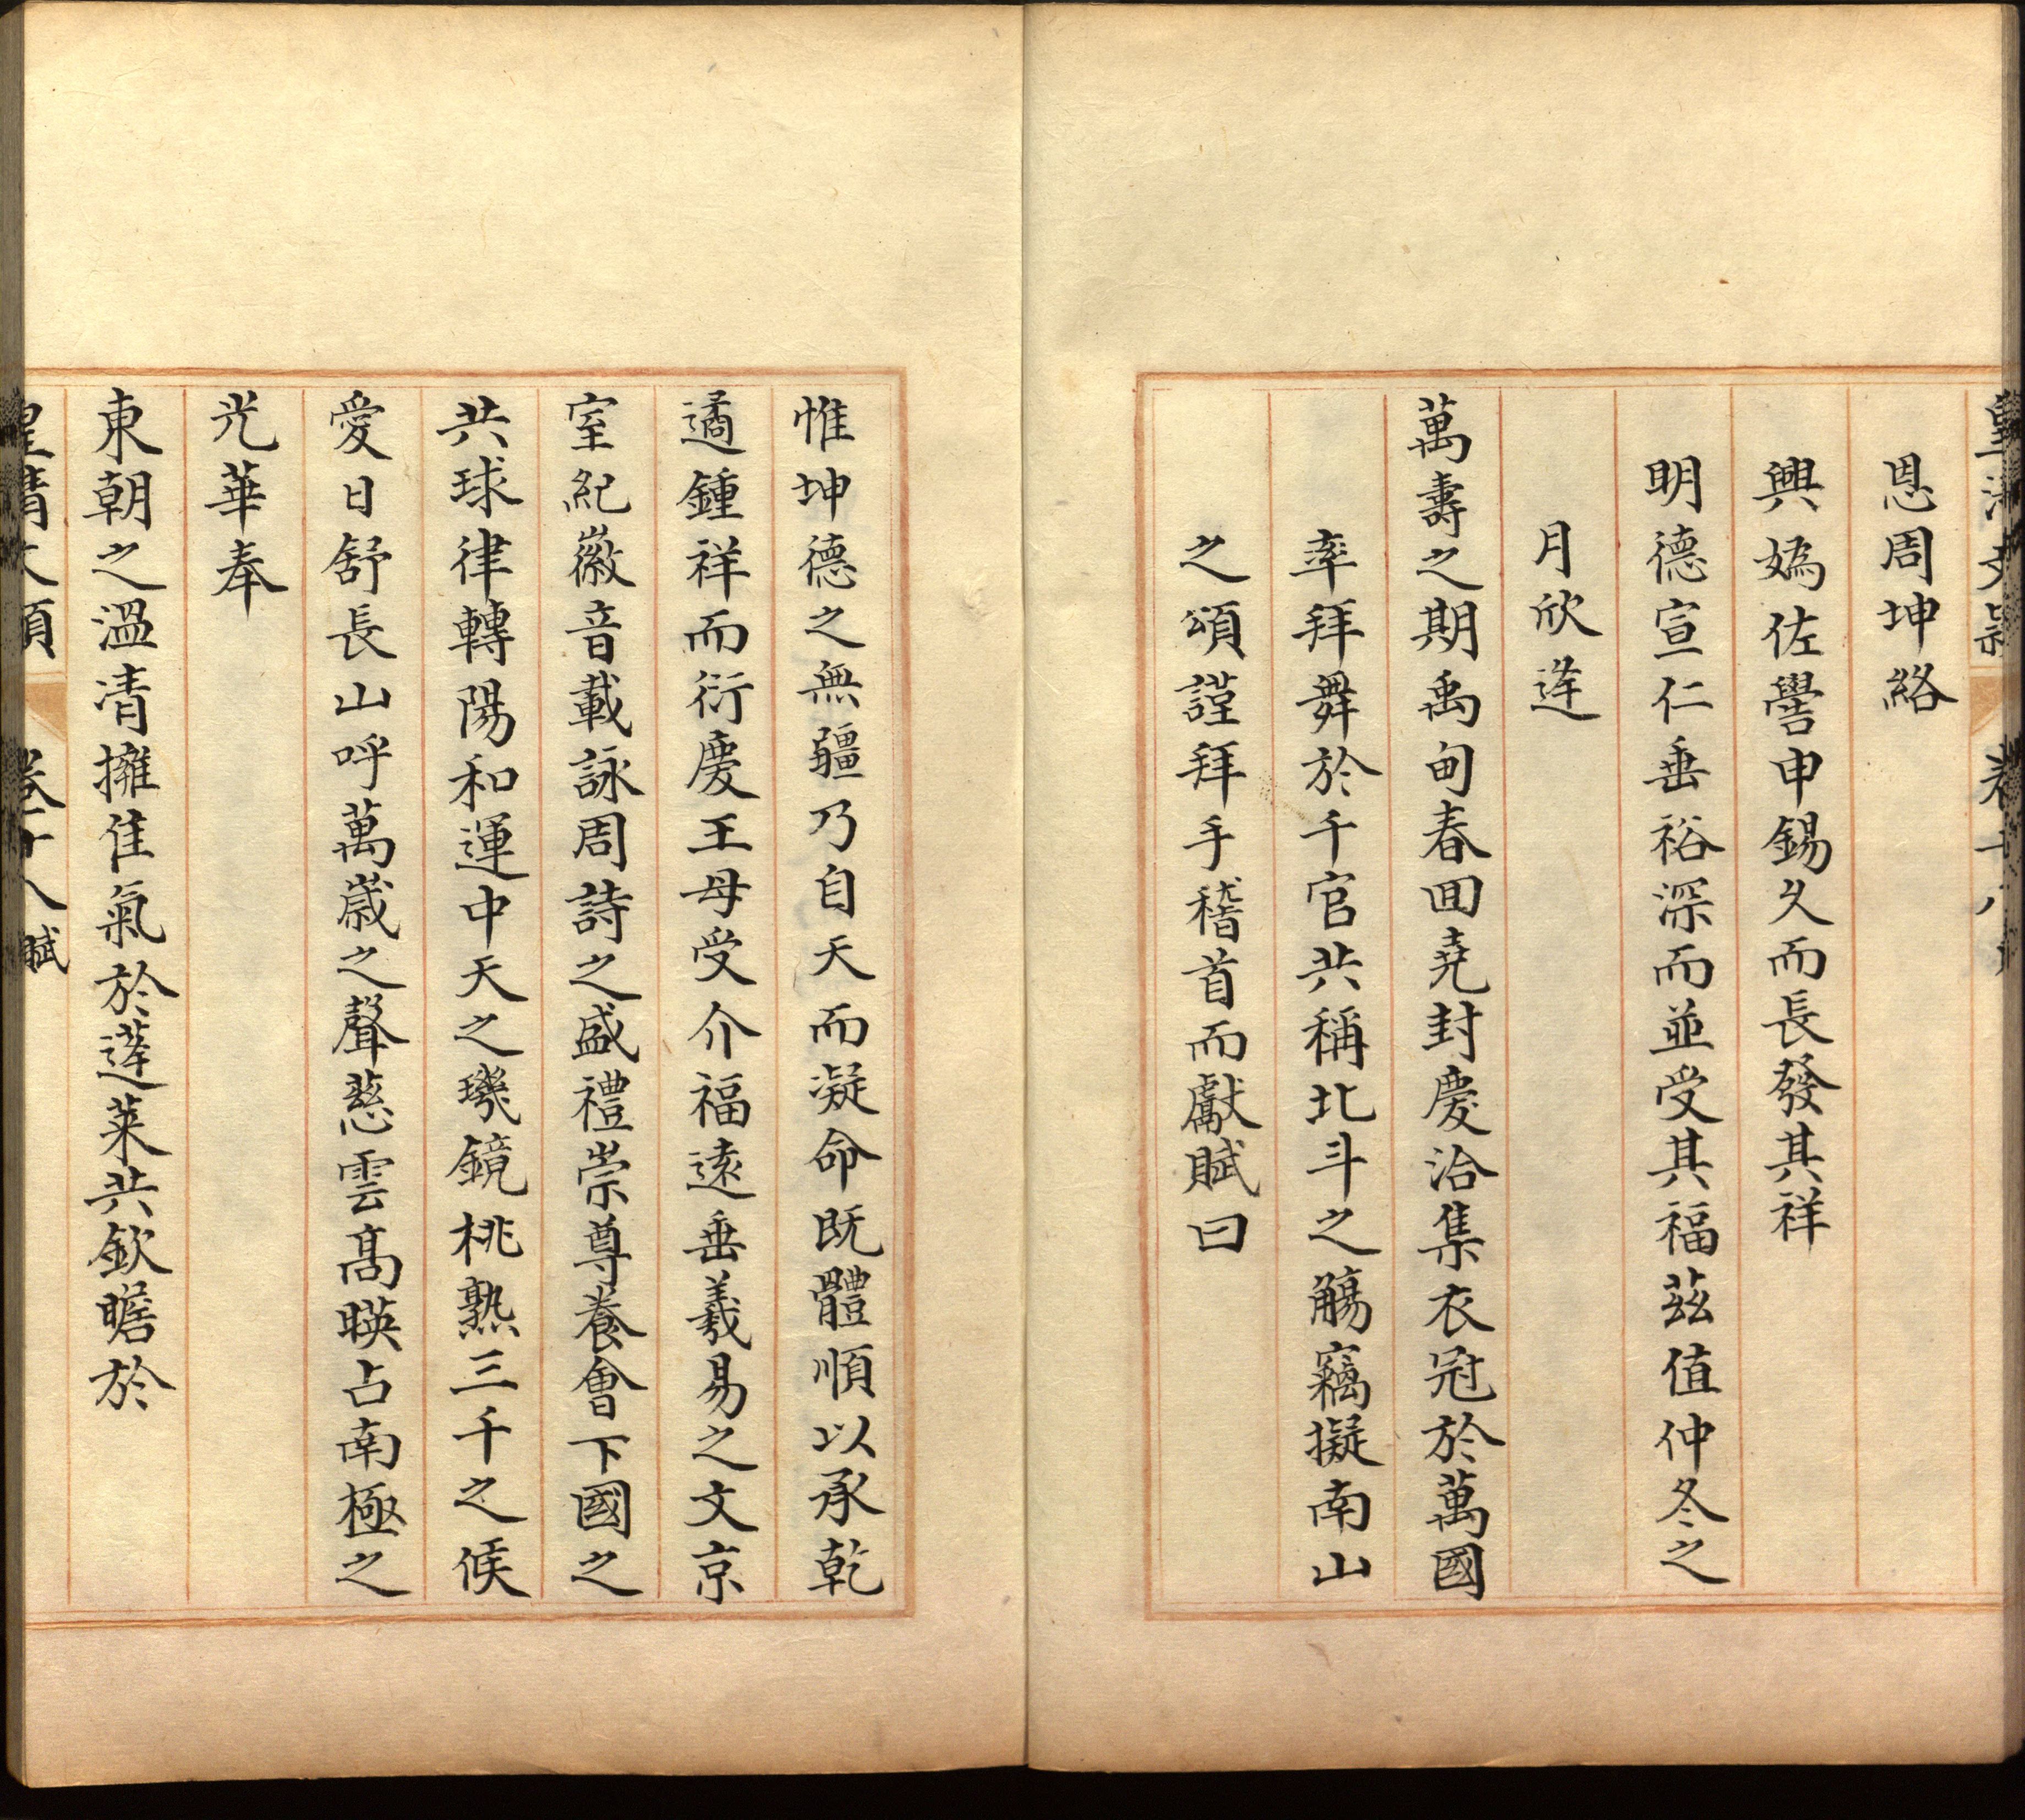 恩周坤絡
興嬀佐嚳申錫久而長發其祥
明德宣仁垂裕深而並受其福茲值仲冬之
月欣逄
萬壽之期禹甸春回堯封慶洽集衣冠於萬國
率拜舞於千官共稱北斗之觴竊擬南山
之頌謹拜手稽首而獻賦曰
惟坤德之無疆乃自天而凝命既體順以承乾
遹鍾祥而衍慶王母受介福逺垂羲易之文京
室紀徽音載詠周詩之盛禮崇尊養會下國之
共球律轉陽和運中天之璣鏡桃熟三千之候
愛日舒長山呼萬嵗之聲慈雲髙暎占南極之
光華奉
東朝之溫凊擁佳氣於蓬萊共欽瞻於
皇清文頴 卷十八 賦